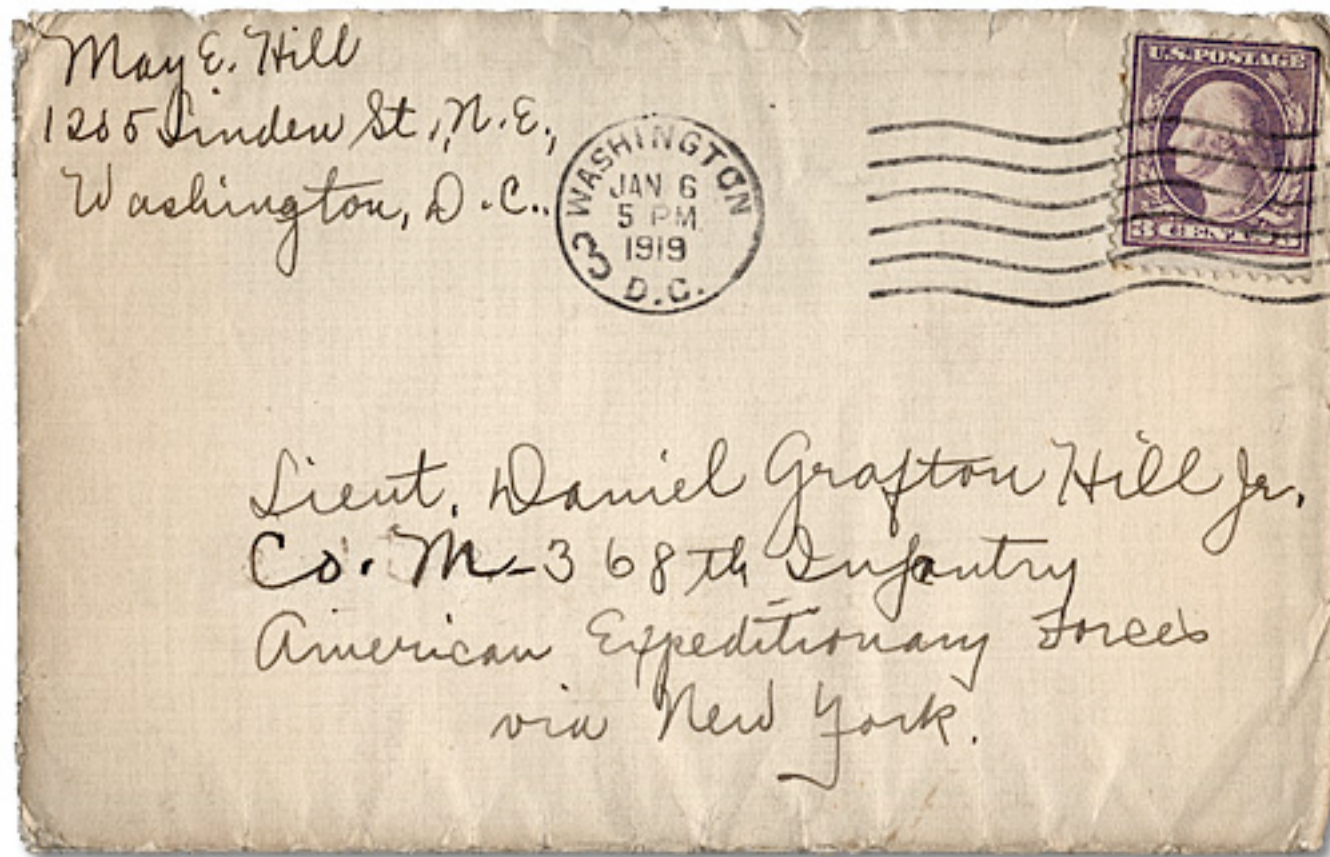 May E. Hill
1205 Linden St., N.E.,
Washington, D.C.
WASHINGTON
JAN 6
5 PM
1919
3 D.C.
U.S. POSTAGE
3 CENTS 3
Lieut. Daniel Grafton Hill Jr.
Co. M-368th Infantry
American Expeditionary Forces
via New York.